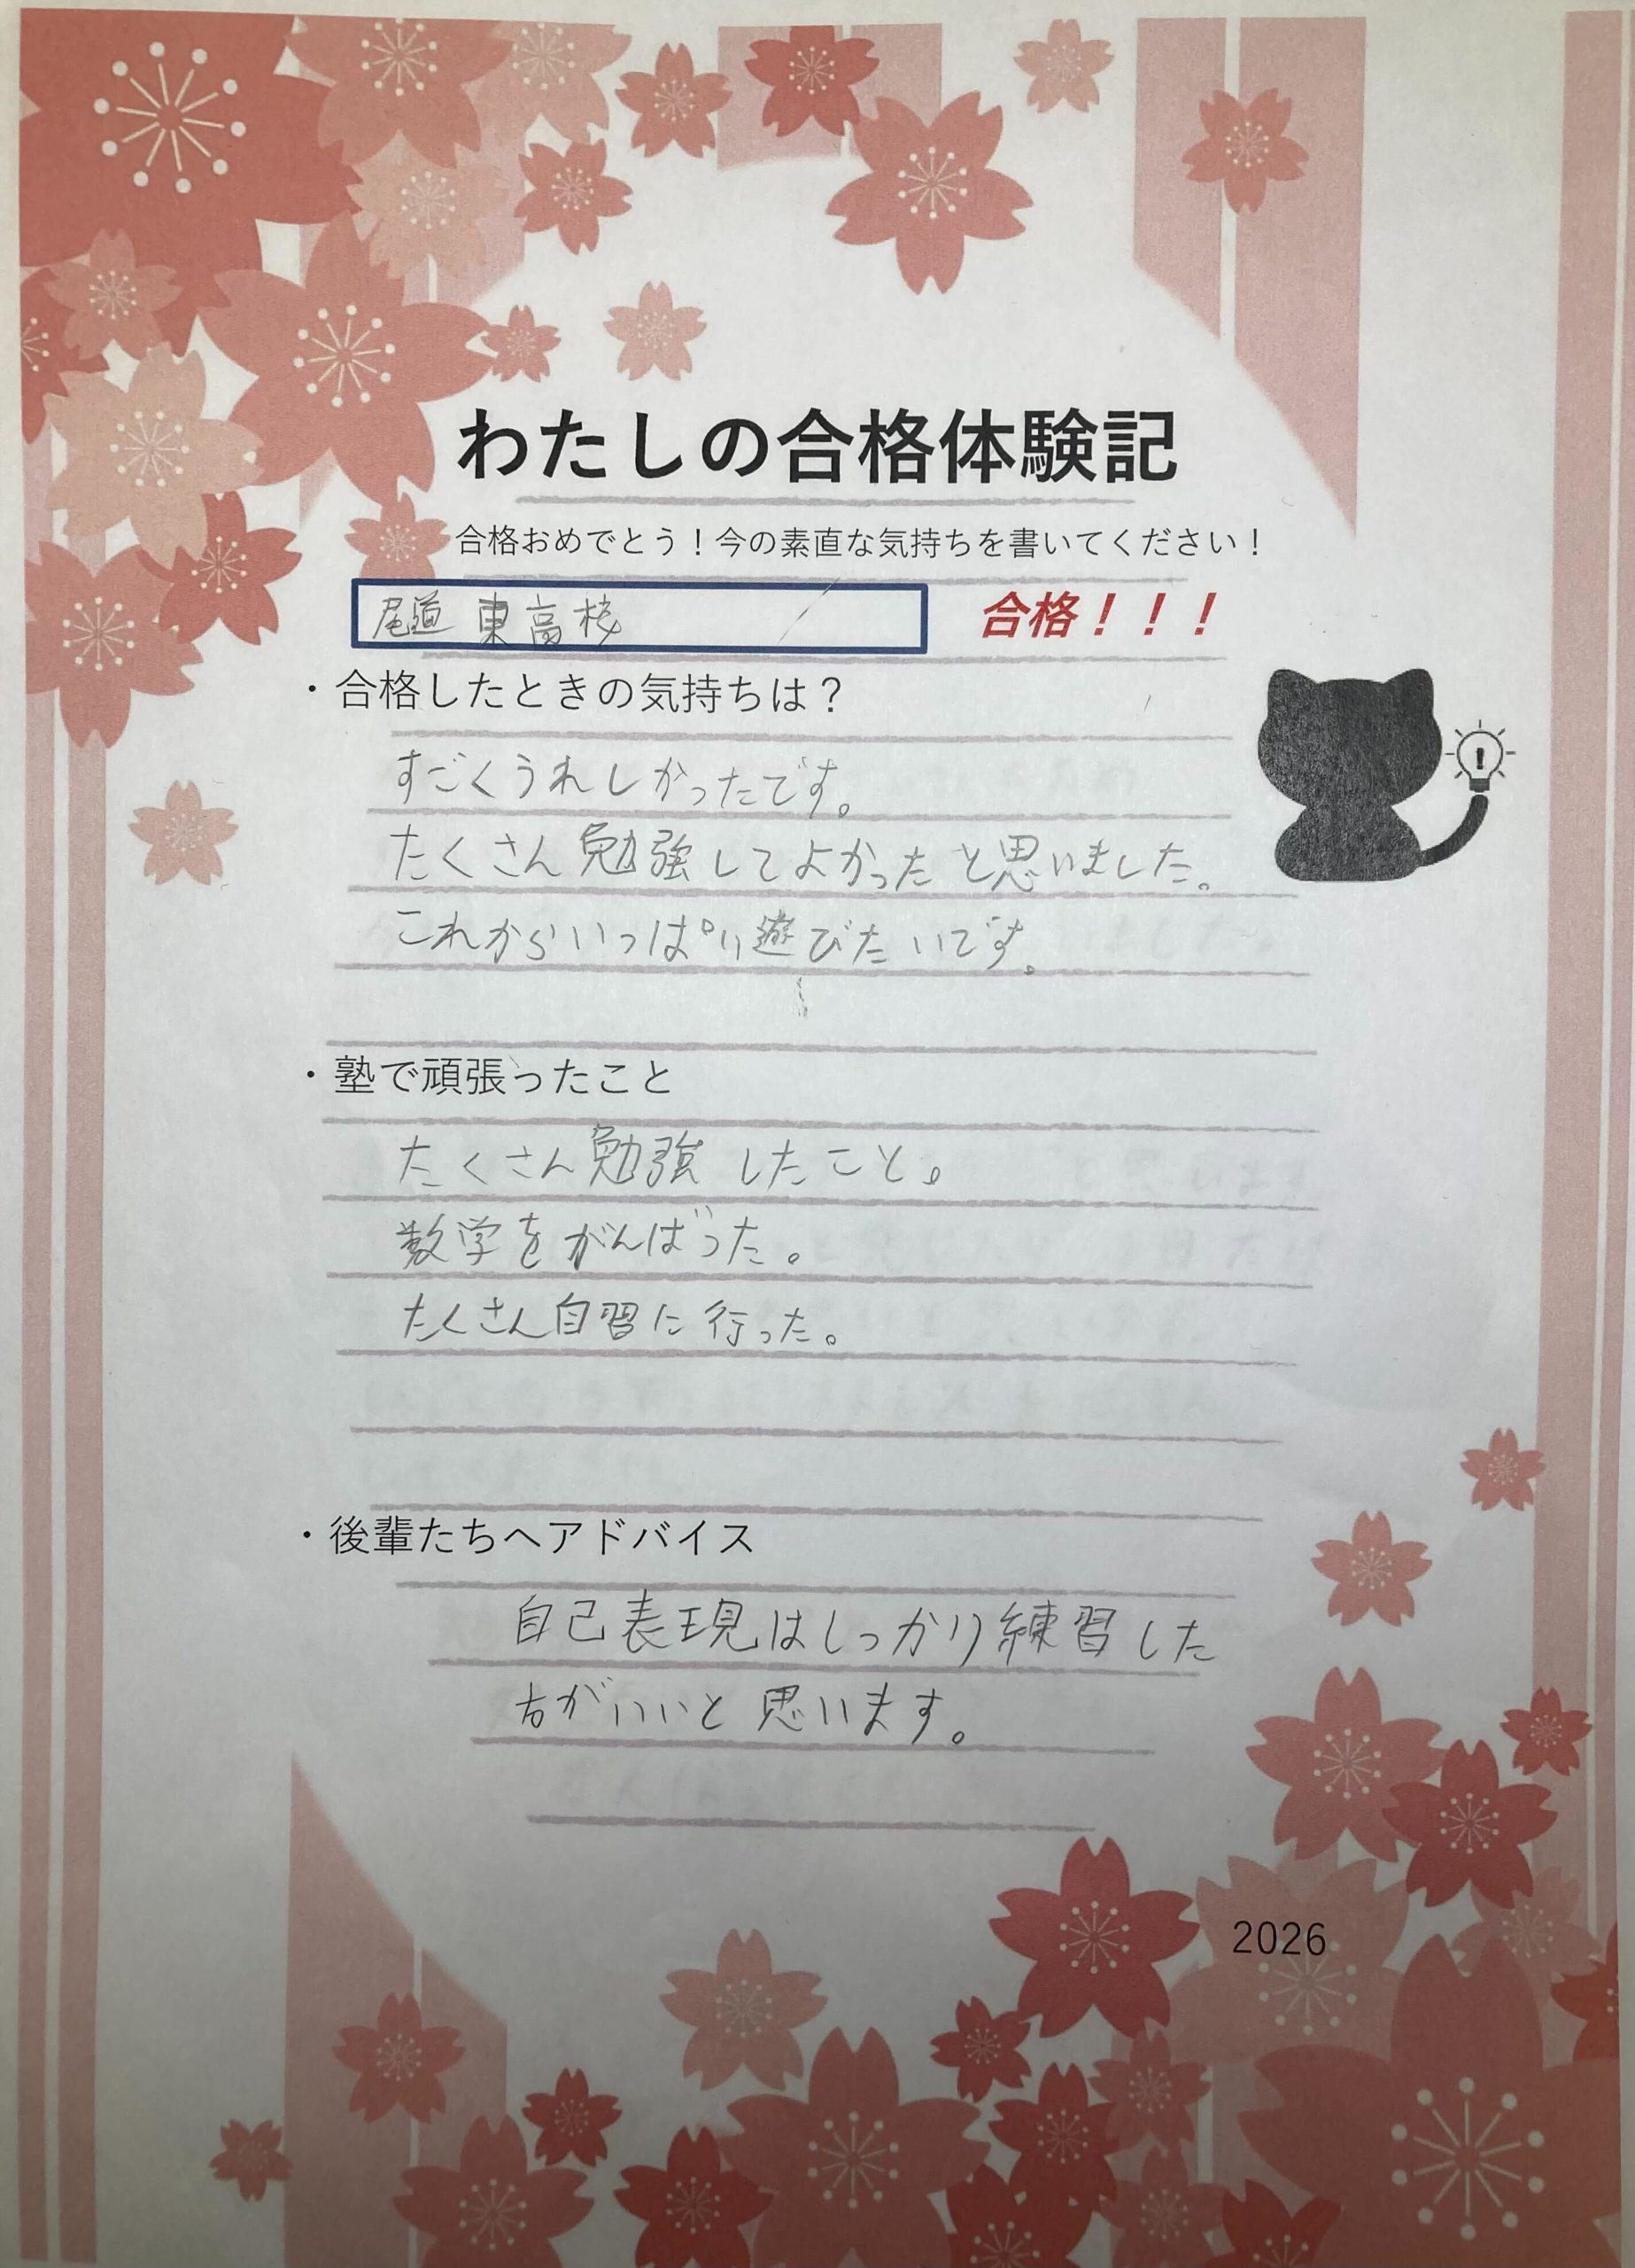 わたしの合格体験記
合格おめでとう！今の素直な気持ちを書いてください！
尾道東高校 合格！！！
・合格したときの気持ちは？
すごくうれしかったです。
たくさん勉強してよかったと思いました。
これからいっぱい遊びたいです。
・塾で頑張ったこと
たくさん勉強したこと。
数学をがんばった。
たくさん自習に行った。
・後輩たちへアドバイス
自己表現はしっかり練習した
方がいいと思います。
2026